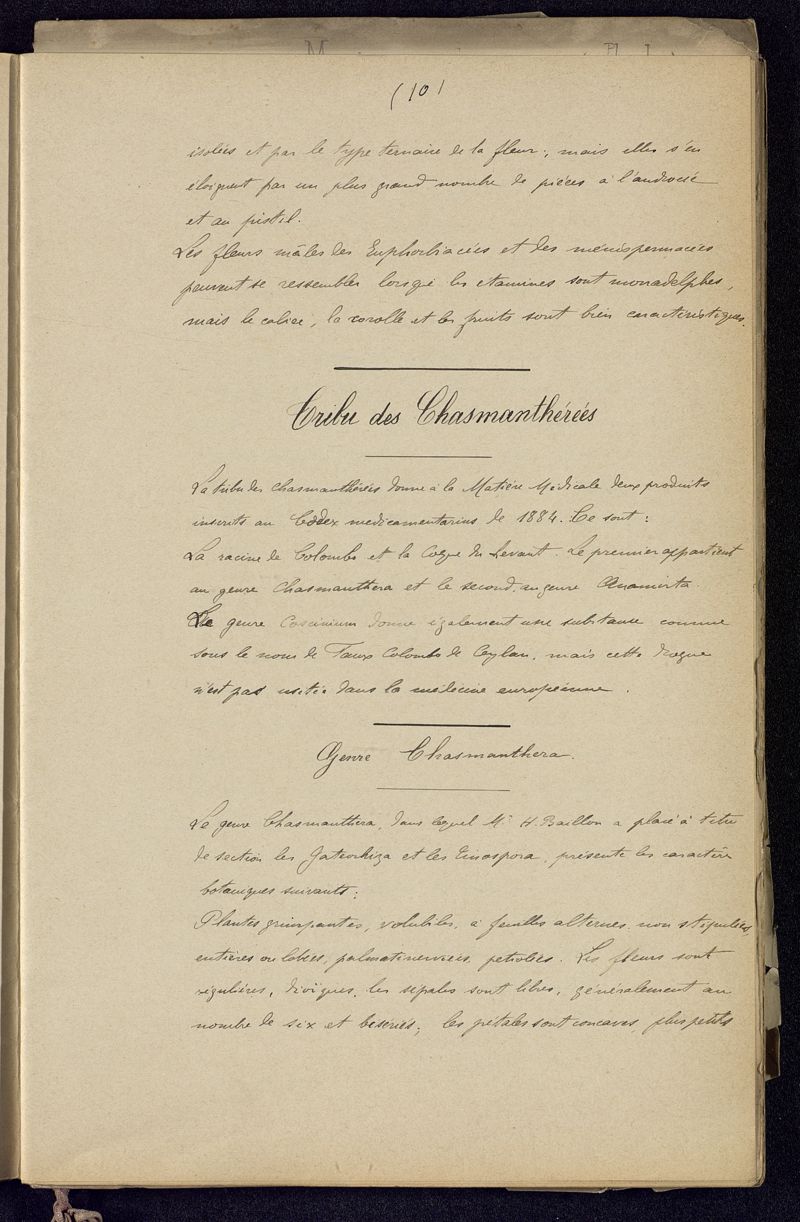 (10)
isolées et par le type ternaire de la fleur; mais elles s'en
éloignent par un plus grand nombre de pièces à l'androcée
et au pistil.
Les fleurs mâles des Euphorbiacées et des ménispermacées
peuvent se ressembler lorsque les étamines sont monadelphes,
mais le calice, la corolle et les fruits sont bien caractéristiques.
Tribu des Chasmanthérées
La tribu des Chasmanthérées donne à la Matière Médicale deux produits
inscrits au Codex medicamentarius de 1884. Ce sont:
La racine de Colombo et la Coque du Levant. Le premier appartient
au genre Chasmanthera et le second, au genre Anamirta.
Le genre Coscinium donne également une substance connue
sous le nom de Faux Colombo de Ceylan, mais cette drogue
n'est pas usitée dans la médecine européenne.
Genre Chasmanthera.
Le genre Chasmanthera, dans lequel Mr H. Baillon a placé à titre
de section les Jateorhiza et les Tinospora, présente les caractères
botaniques suivants:
Plantes grimpantes, volubiles, à feuilles alternes, non stipulées,
entières ou lobées, palmatinerviées, petiolées. Les fleurs sont
régulières, dioïques, les sépales sont libres, généralement au
nombre de six et bisériés; les pétales sont concaves, plus petits